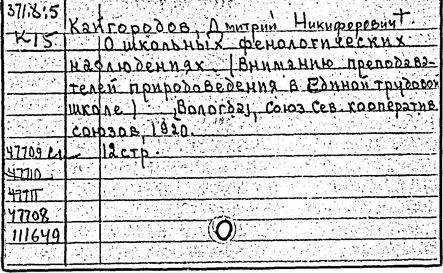 371.8:5
К15
Кайгородов, Дмитрий Никифорович†.
О школьных фенологических
наблюдениях. (Вниманию преподава-
телей природоведения в Единой трудовой
школе) [Вологда], Союз Сев. кооператив.
союзов, 1920.
12 стр.
47709
47710
47711
47708
111649